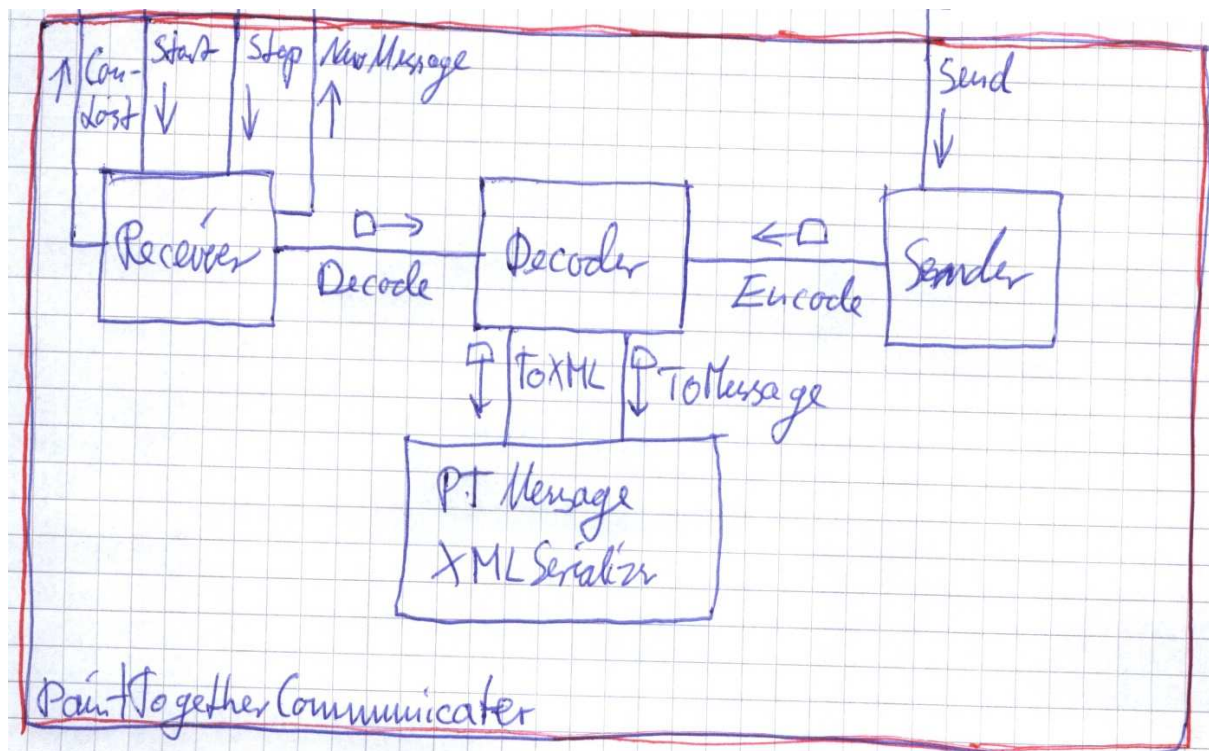 Con-
Lost
Start
Stop
NewMessage
Send
Receiver
Decode
Decoder
Encode
Sender
ToXML
ToMessage
PT Message
XMLSerializr
PaintTogetherCommunicater